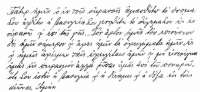 Πάτερ ἡμῶν ὁ ἐν τοῖς οὐρανοῖς ἁγιασθήτω τὸ ὄνομά
σου ἐλθέτω ἡ βασιλεία σου γενηθήτω τὸ θέλημά σου ὡς ἐν
οὐρανῷ καὶ ἐπὶ τῆς γῆς. Τὸν ἄρτον ἡμῶν τὸν ἐπιούσιον
δὸς ἡμῖν σήμερον καὶ ἄφες ἡμῖν τὰ ὀφειλήματα ἡμῶν ὡς
καὶ ἡμεῖς ἀφίεμεν τοῖς ὀφειλέταις ἡμῶν καὶ μὴ εἰσενέγκῃς
ἡμᾶς εἰς πειρασμὸν ἀλλὰ ῥῦσαι ἡμᾶς ἀπὸ τοῦ πονηροῦ.
ὅτι σοῦ ἐστιν ἡ βασιλεία καὶ ἡ δύναμις καὶ ἡ δόξα εἰς τοὺς
αἰῶνας, ἀμήν